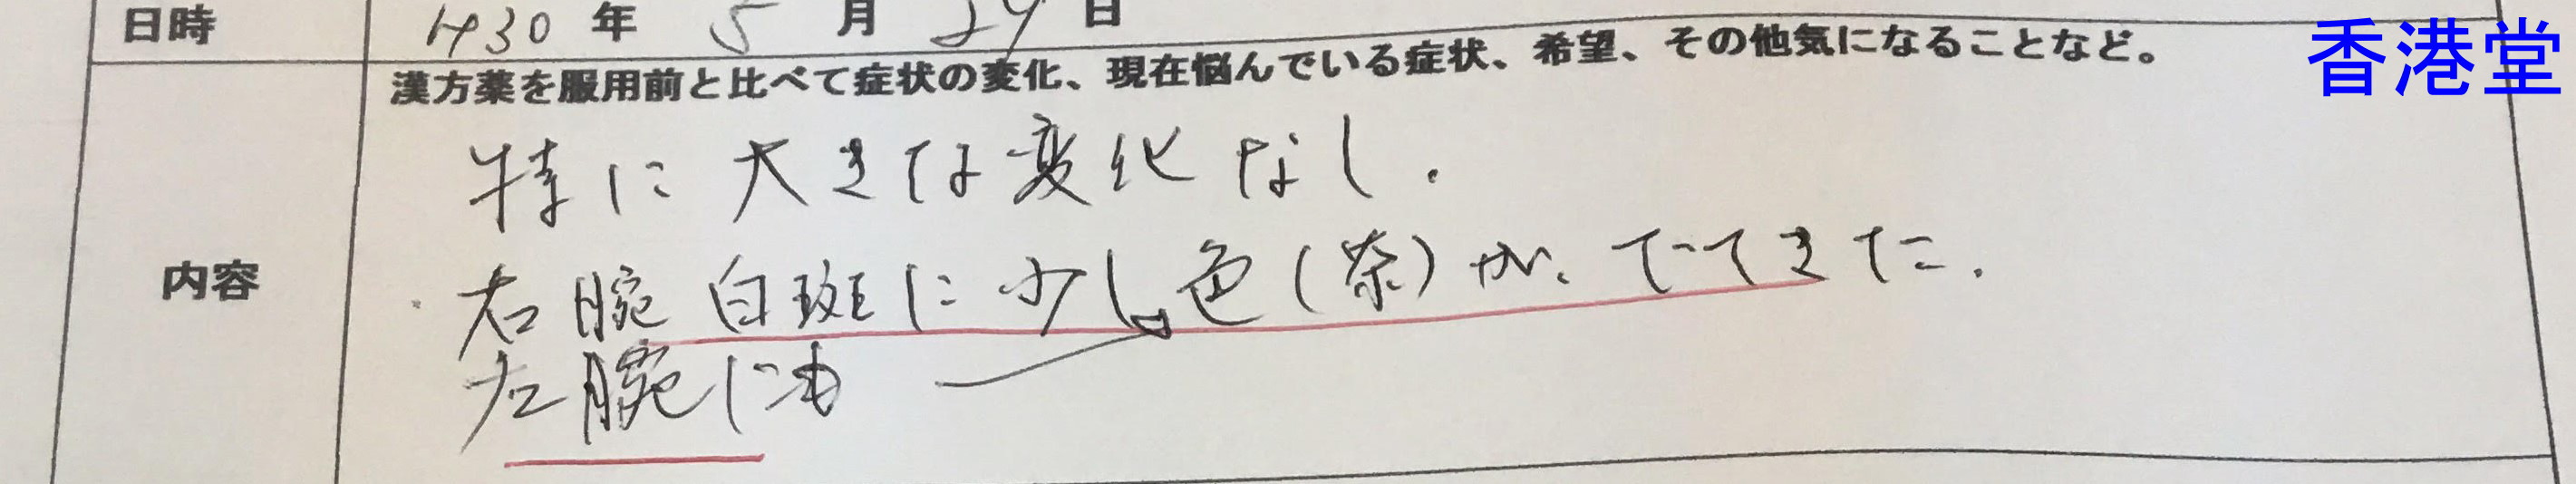 日時 H30年 5月 29日
香港堂
漢方薬を服用前と比べて症状の変化、現在悩んでいる症状、希望、その他気になることなど。
内容
特に大きな変化なし.
右腕白斑に少し色(茶)が、でてきた.
左腕にも